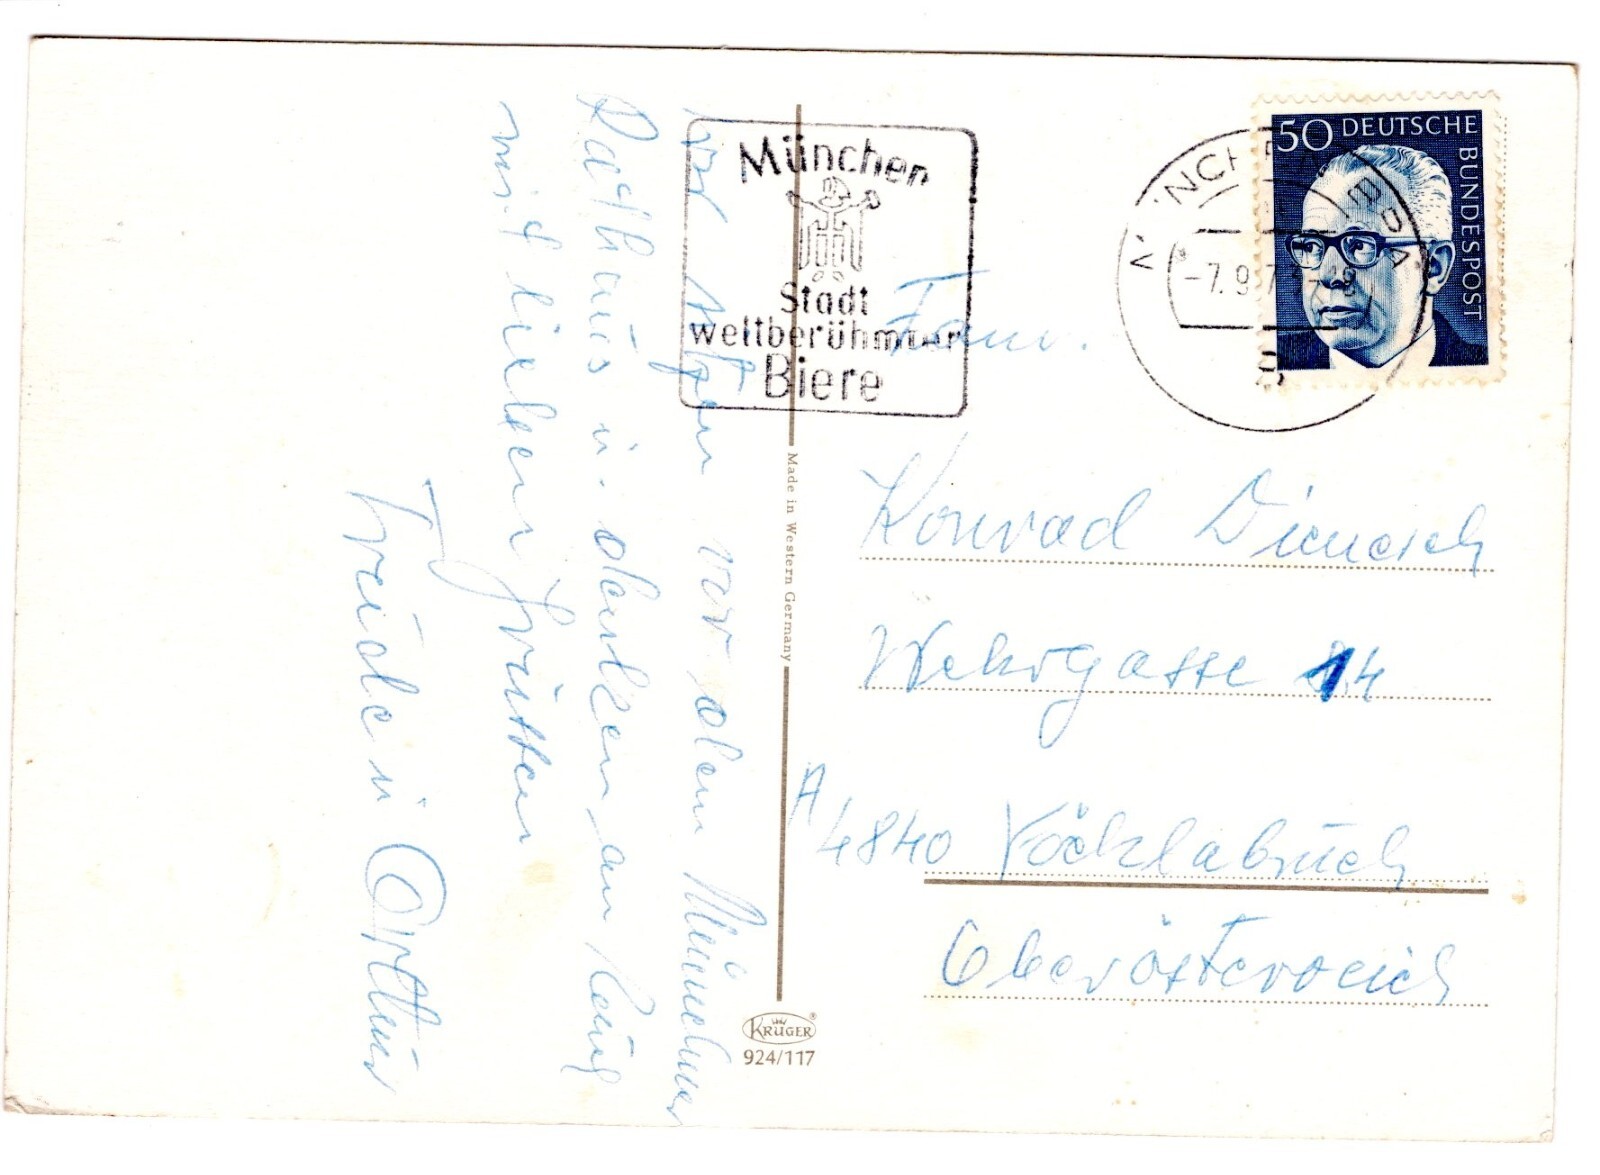 wir sitzen vor dem Münchner
Rathaus u. denken an Euch
mit lieben Grüßen
Friedl u. Arthur
München
Stadt
weltberühmter
Biere
50 DEUTSCHE
BUNDESPOST
-7.9.7
8
Fam.
Konrad
Wehrgasse 14
A
4840 Vöcklabruck
Oberösterreich
Made in Western Germany
KRÜGER®
924/117